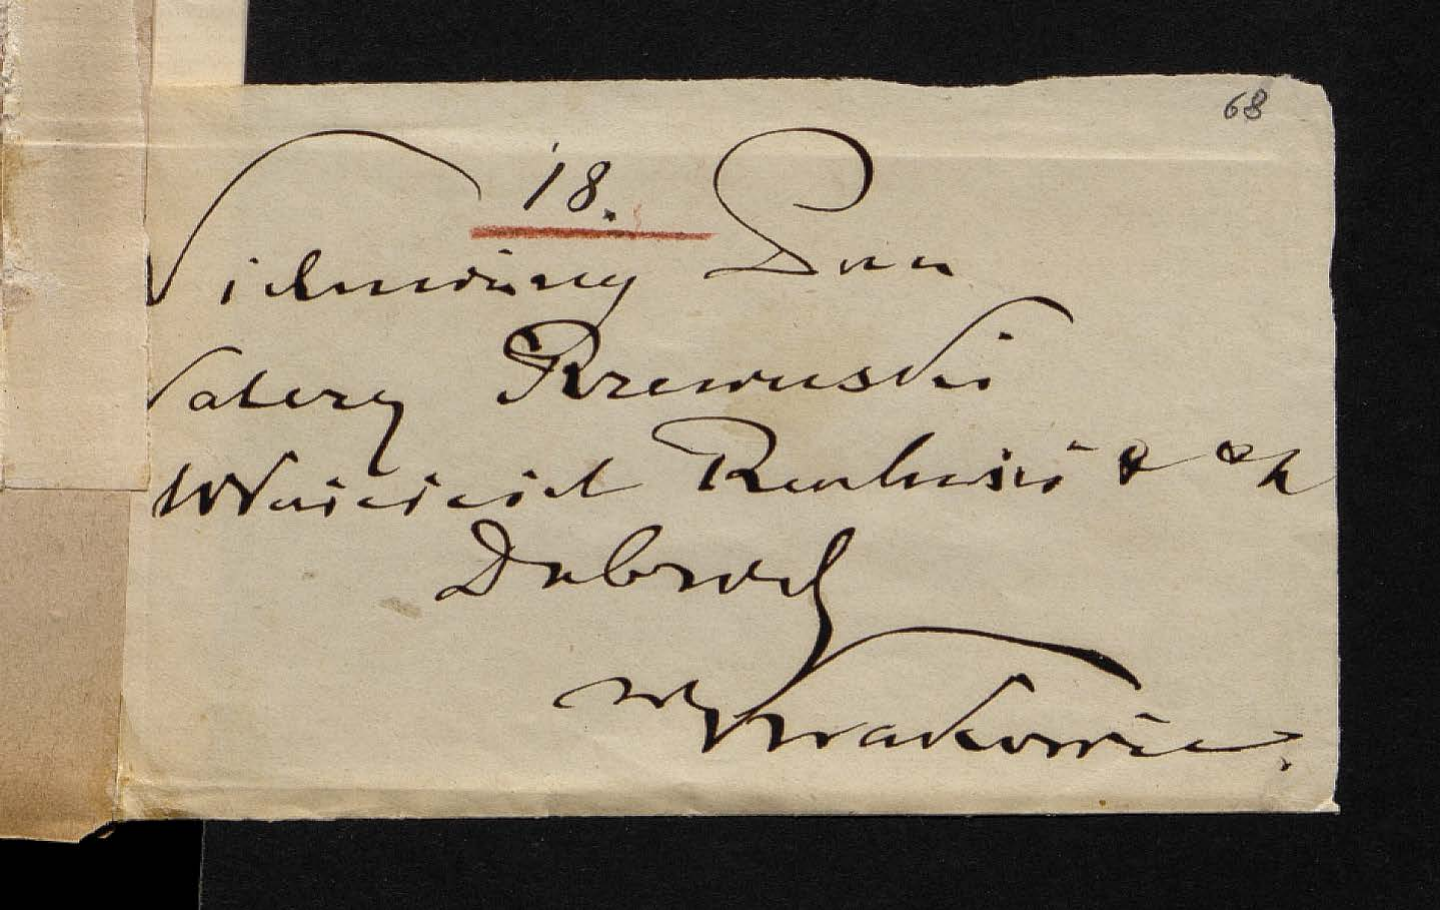 68
18.
Wielmożny Pan
Walery Rzewuski
Właściciel Realności &
Dobrodz
w Krakowie.